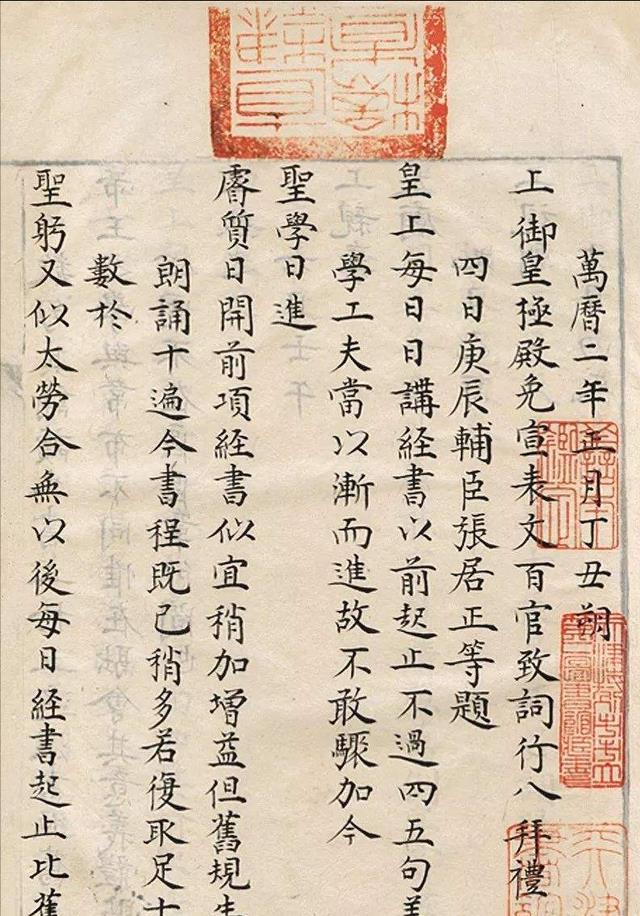 萬曆二年正月丁丑朔
上御皇極殿免宣表文百官致詞行八拜禮
四日庚辰輔臣張居正等題
皇上每日日講経書以前起止不過四五句
學工夫當以漸而進故不敢驟加今
聖學日進
睿質日開前項経書似宜稍加增益但舊規
朗誦十遍今書程既已稍多若復取足十
數於
聖躬又似太勞合無以後每日経書起止比舊